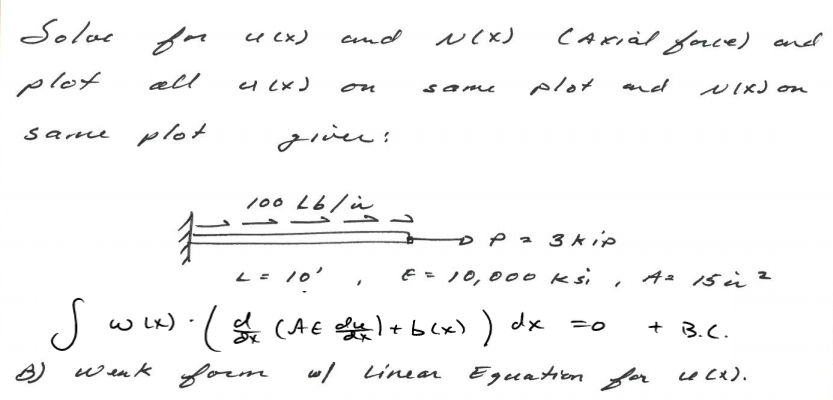 Solve for u(x) and N(x) (Axial force) and
plot all u(x) on same plot and N(x) on
same plot given:
100 Lb/in
P = 3 kip
L = 10', E = 10,000 ksi, A = 15 in²
∫ w(x) · ( d/dx (AE du/dx) + b(x) ) dx = 0 + B.C.
B) weak form w/ Linear Equation for u(x).